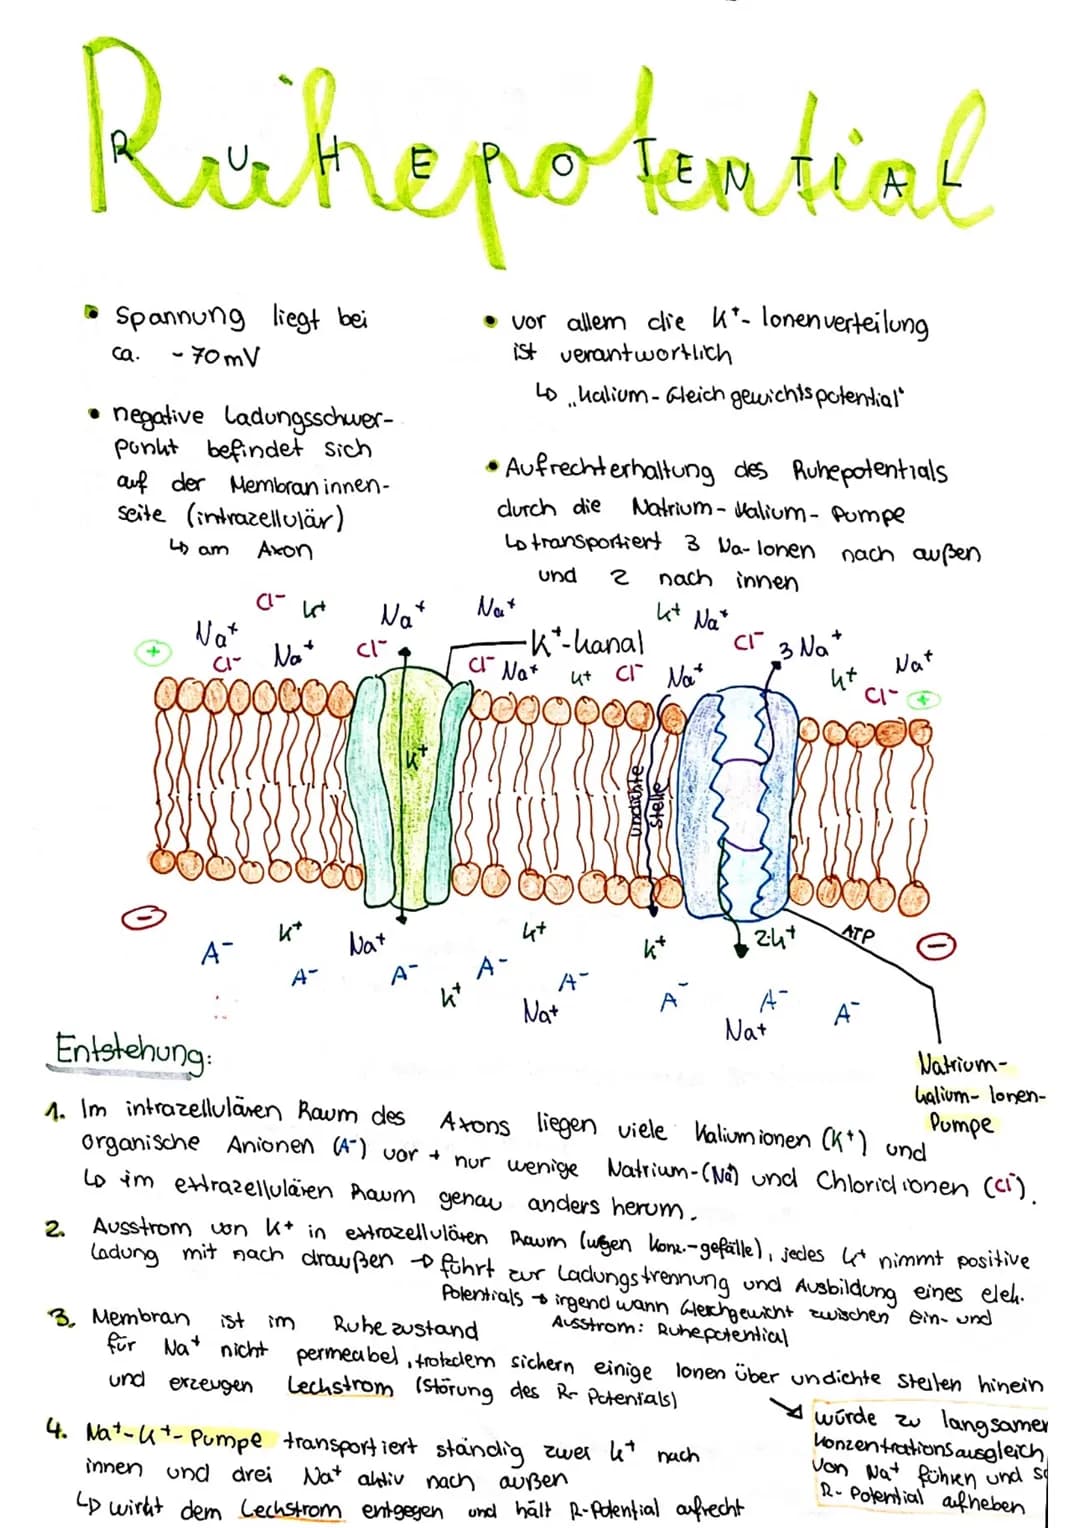 Ruhepotential
RUHEPOTENTIAL
• Spannung liegt bei
ca. -70mV
• negative Ladungsschwer-
punkt befindet sich
auf der Membraninnen-
seite (intrazellulär)
↳ am Axon
• vor allem die K⁺-Ionenverteilung
ist verantwortlich
↳ „Kalium-Gleichgewichtspotential“
• Aufrechterhaltung des Ruhepotentials
durch die Natrium-Kalium-Pumpe
↳ transportiert 3 Na-Ionen nach außen
und 2 nach innen
Cl⁻ K⁺ Na⁺ Na⁺ K⁺ Na⁺
+ Na⁺ Cl⁻ Na⁺ Cl⁻ K⁺-Kanal Cl⁻ 3 Na⁺
Cl⁻ Na⁺ K⁺ Cl⁻ Na⁺ K⁺ Cl⁻ Na⁺ +
K⁺
undichte
Stelle
− K⁺ Na⁺ K⁺ K⁺ 2K⁺ ATP −
A⁻ A⁻ A⁻ K⁺ A⁻ A⁻ Na⁺ A⁻ A⁻ Na⁺ A⁻
Natrium-
Kalium-Ionen-
Pumpe
Entstehung:
1. Im intrazellulären Raum des Axons liegen viele Kaliumionen (K⁺) und
organische Anionen (A⁻) vor + nur wenige Natrium-(Na⁺) und Chloridionen (Cl⁻).
↳ im extrazellulären Raum genau anders herum.
2. Ausstrom von K⁺ in extrazellulären Raum (wegen Konz.-gefälle), jedes K⁺ nimmt positive
Ladung mit nach draußen → führt zur Ladungstrennung und Ausbildung eines elek.
Potentials → irgendwann Gleichgewicht zwischen Ein- und
Ausstrom: Ruhepotential
3. Membran ist im Ruhezustand
für Na⁺ nicht permeabel, trotzdem sichern einige Ionen über undichte Stellen hinein
und erzeugen Leckstrom (Störung des R-Potenials)
↘ würde zu langsamer
Konzentrationsausgleich
von Na⁺ führen und so
R-Potential aufheben
4. Na⁺-K⁺-Pumpe transportiert ständig zwei K⁺ nach
innen und drei Na⁺ aktiv nach außen
↳ wirkt dem Leckstrom entgegen und hält R-Potential aufrecht